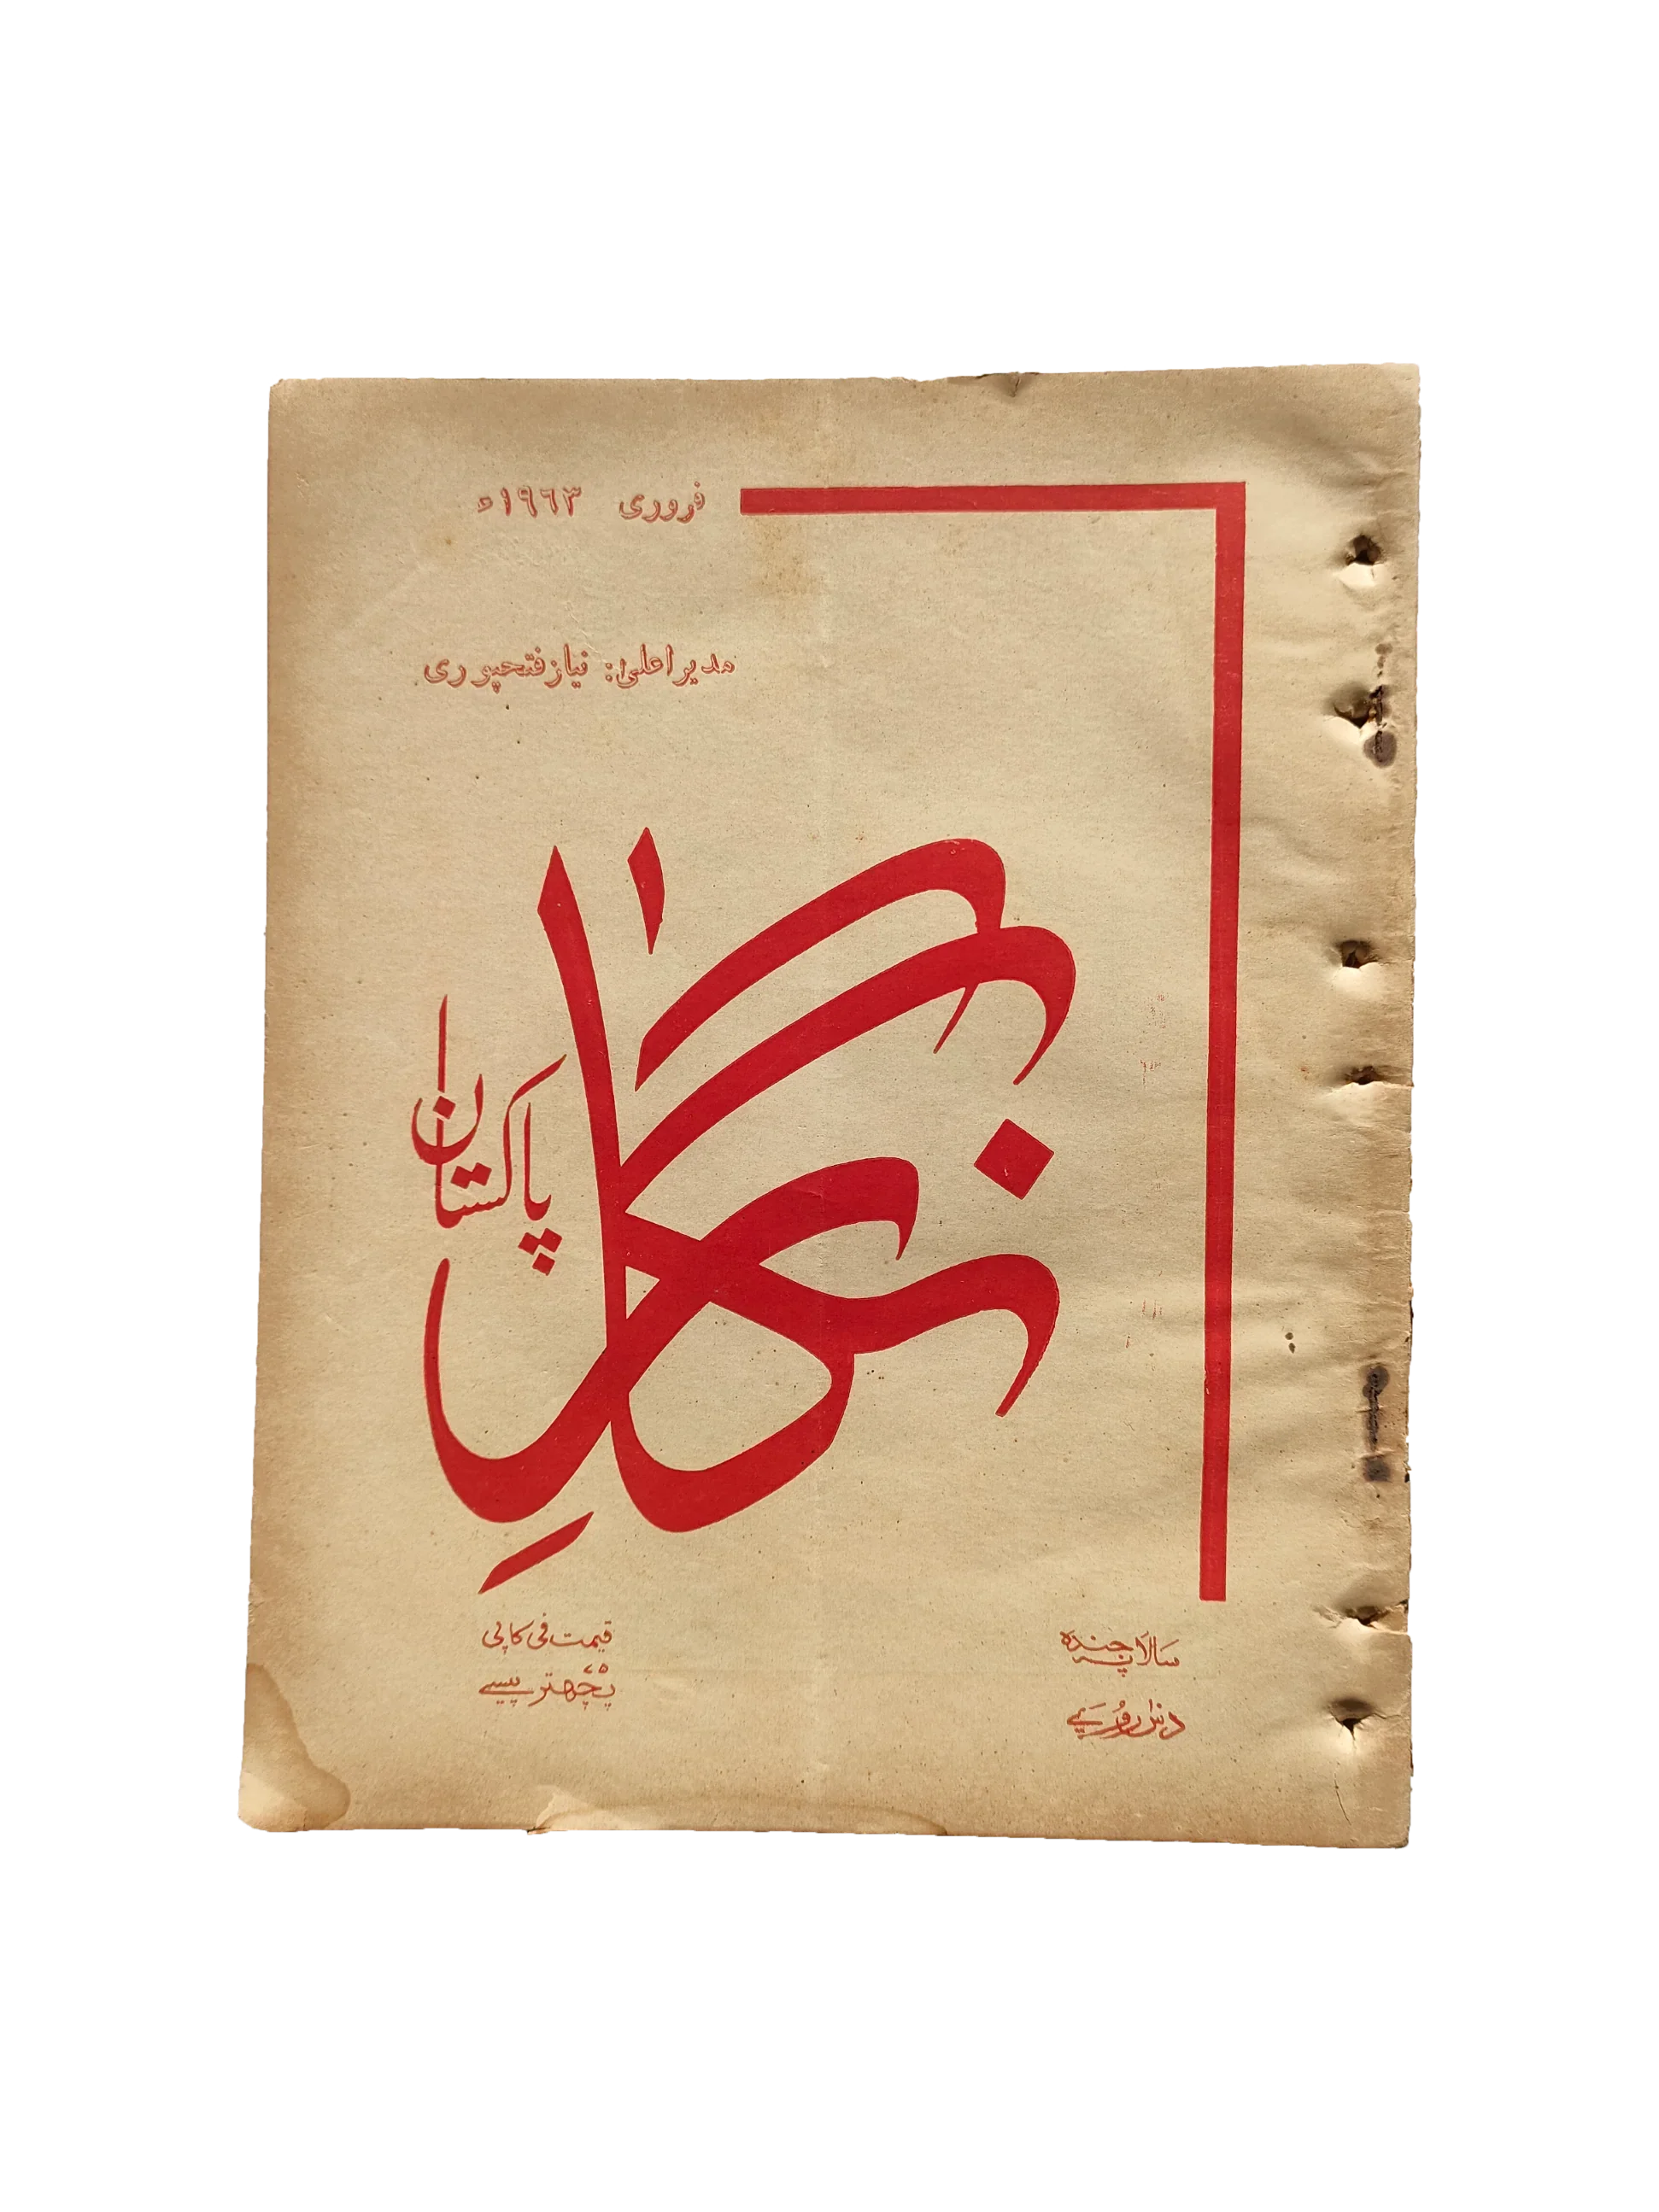 فروری ۱۹۶۳ء
مدیر اعلیٰ: نیاز فتحپوری
نگار
پاکستان
سالانہ چندہ
دس روپے
قیمت فی کاپی
پچھتر پیسے